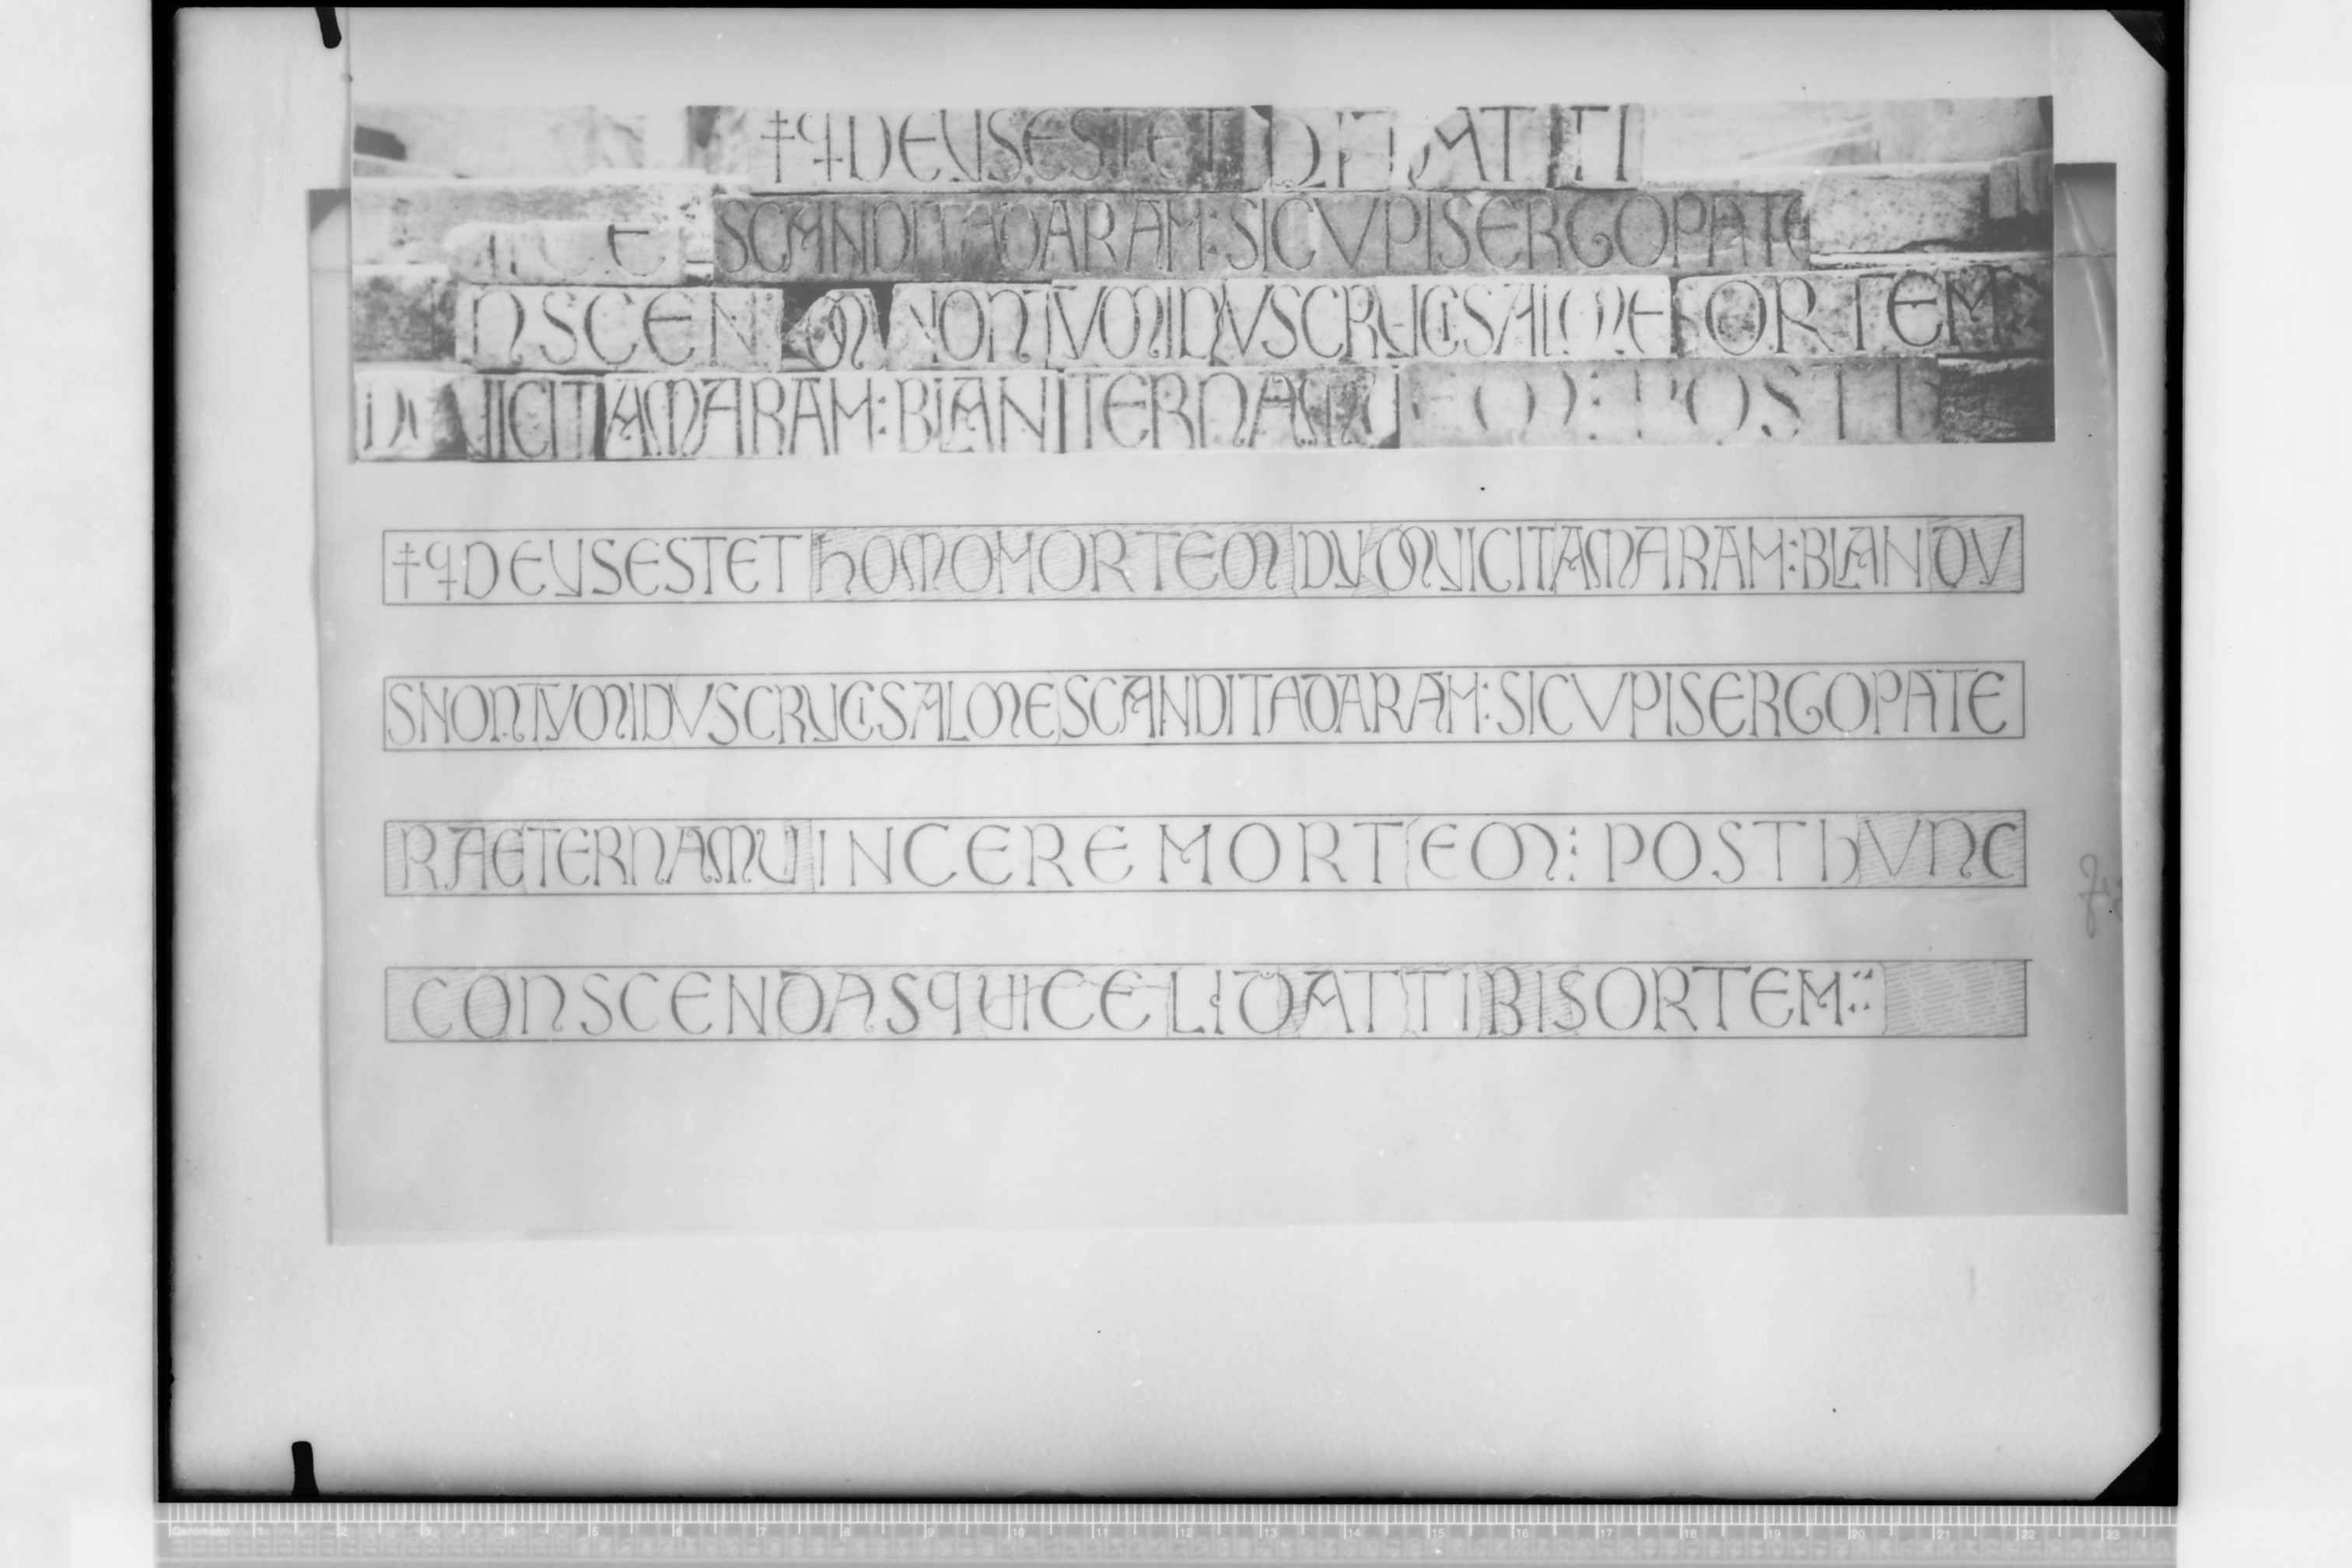 ‡qDEVSESTET D ATTI
SCANDITADARAM:SICVPISERGOPATE
NSCEN M NONTVMIDVSCRVCISALME SORTEM
VICITAMARAM:BLAN TERNAMV EM: POSTH
‡qDEVSESTETHOMOMORTEMDVMVICITAMARAM:BLANDV
SNONTVMIDVSCRVCISALMESCANDITADARAM:SICVPISERGOPATE
RAETERNAMVINCEREMORTEM: POSTHVNC
CONSCENDASQUICELIDATTIBISORTEM::
1 2 3 4 5 6 7 8 9 10 11 12 13 14 15 16 17 18 19 20 21 22 23